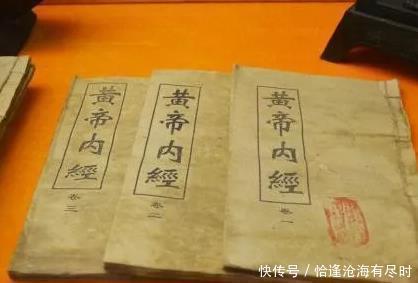 黄帝内經
卷三
黄帝内經
卷二
黄帝内經
卷一
快传号／恰逢沧海有尽时